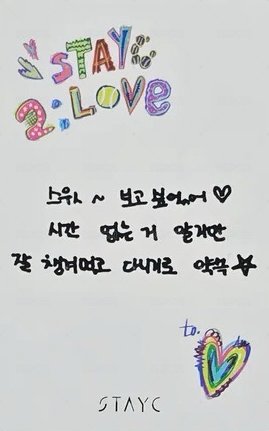 STAYC
2: LOVe
스위스 ~ 보고 싶었어 ♡
시간 없는 거 알지만
잘 챙겨먹고 다시기로 약쏙 ☆
to.
STAYC